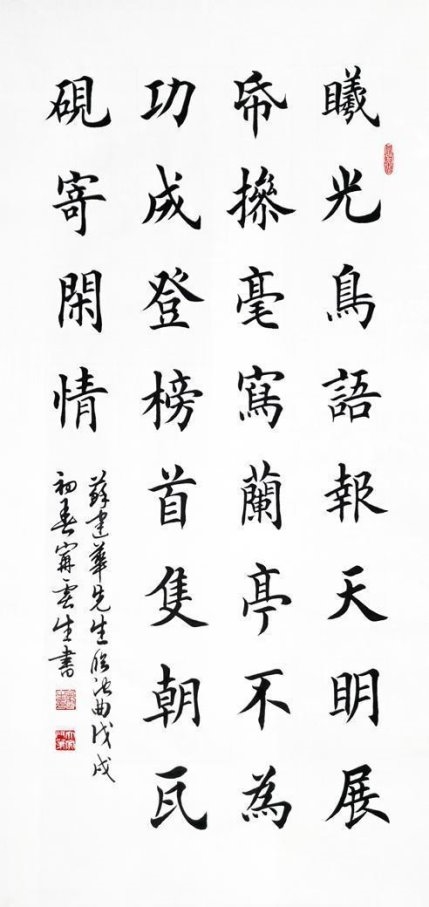 曦光鳥語報天明展
帋摻毫寫蘭亭不為
功成登榜首隻朝瓦
硯寄閑情
蘇建華先生臨池曲戊戌
初春甯雲生書